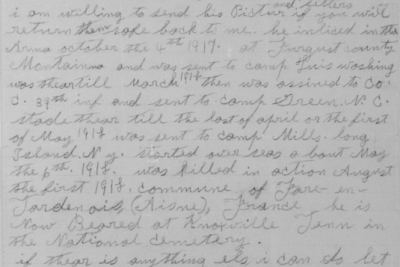 and letters
i am willing to send his Pictur if you will
return them safe back to me. he inlisted in the
Arma october the 4th 1917. at Furgust county
Montainna and was sent to camp Luis woshing
was thear till March 1918 then was assined to Co
C. 39th inf and sent to camp Green. N. C.
stade thear till the last of april or the first
of May 1918 was sent to camp Mills. long
Island. N. y. started over seas a bout May
the 6th. 1918. was Killed in action August
the first 1918. commune of Fare-en-
Tardenois, (Aisne), France he is
Now Beared at Knoxville Tenn in
the National Cemetary.
if thear is anything els i can do let